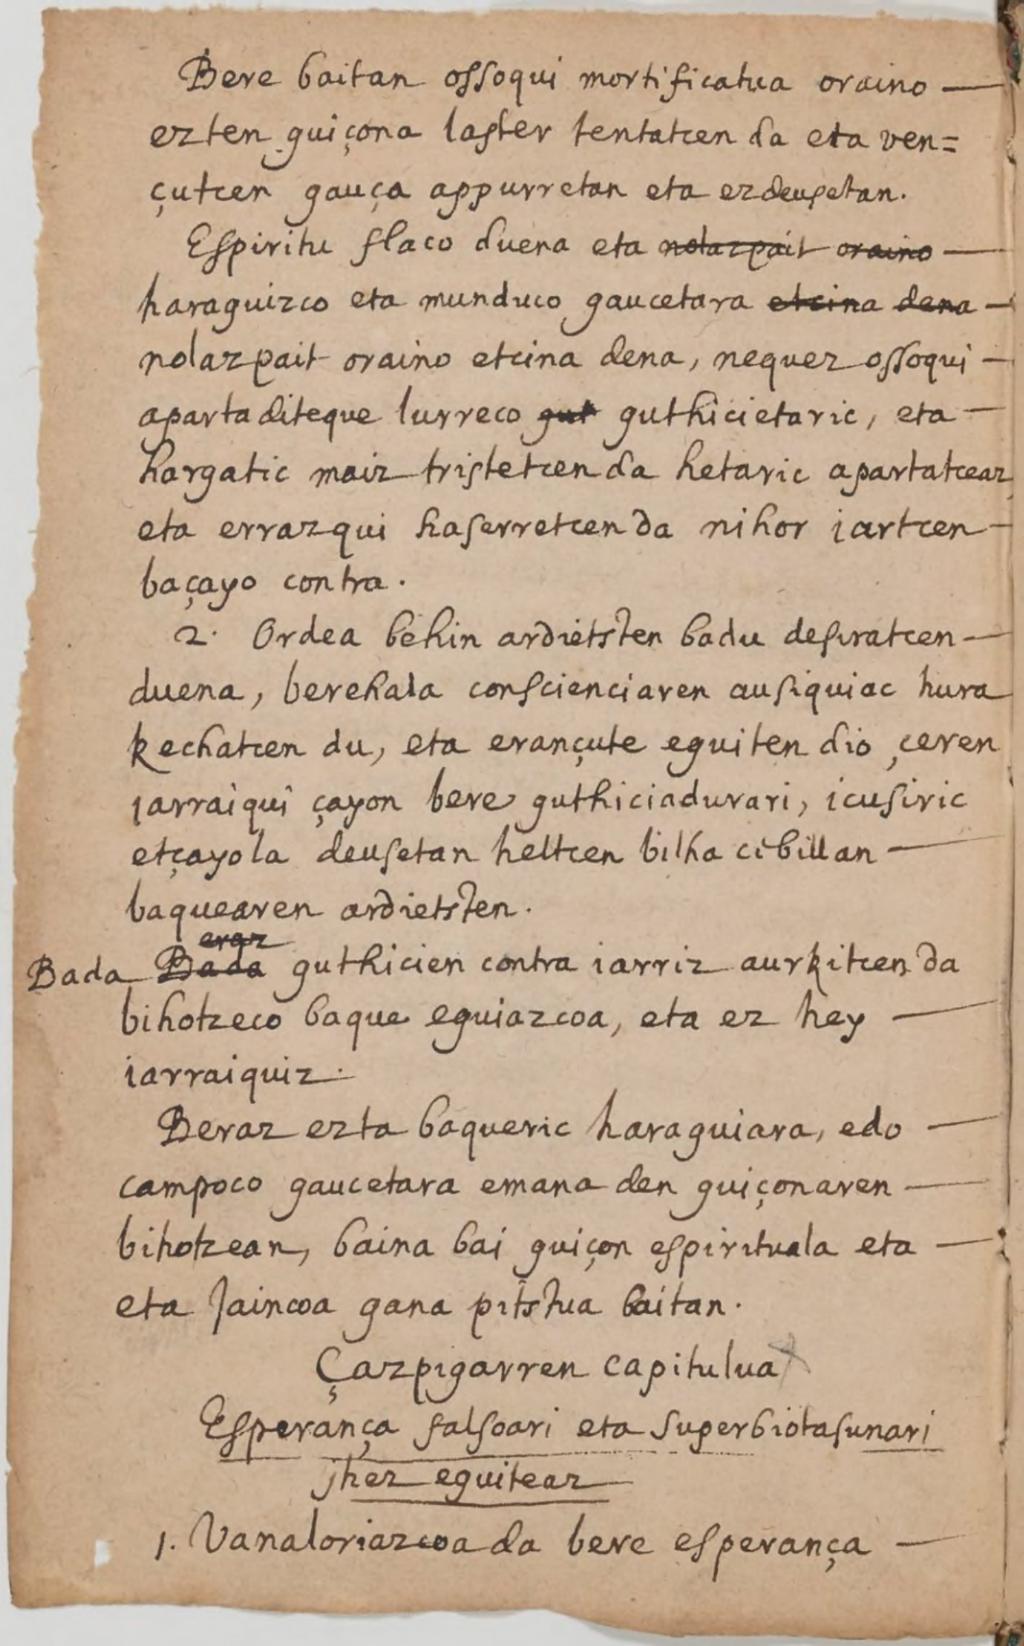 Bere baitan ossoqui mortificatua oraino —
ezten guiçona laster tentatcen da eta ven=
çutcen gauça appurretan eta ezdeusetan.
Espiritu flaco duena eta nolazpait oraino —
haraguizco eta munduco gaucetara etcina dena —
nolazpait oraino etcina dena, nequez ossoqui —
aparta diteque lurreco gut guthicietaric, eta —
hargatic maiz tristetcen da hetaric apartatceaz
eta errazqui haserretcen da nihor iartcen —
baçayo contra.
2. Ordea behin ardietsten badu desiratcen —
duena, berehala conscienciaren ausiquiac hura
kechatcen du, eta erançute eguiten dio, ceren
iarraiqui çayon bere guthiciadurari, icusiric
etçayola deusetan heltcen bilha cibillan —
baquearen ardietsten.
eraz
Bada Bada guthicien contra iarriz aurkitcen da
bihotzeco baque eguiazcoa, eta ez hey —
iarraiquiz.
Beraz ezta baqueric haraguiara, edo —
campoco gaucetara emana den guiçonaren —
bihotzean, baina bai guiçon espirituala eta —
eta Jaincoa gana pitstua baitan.
Çazpigarren capitulua
Esperança falsoari eta superbiotasunari
ihez eguiteaz
1. Vanaloriazcoa da bere esperança —